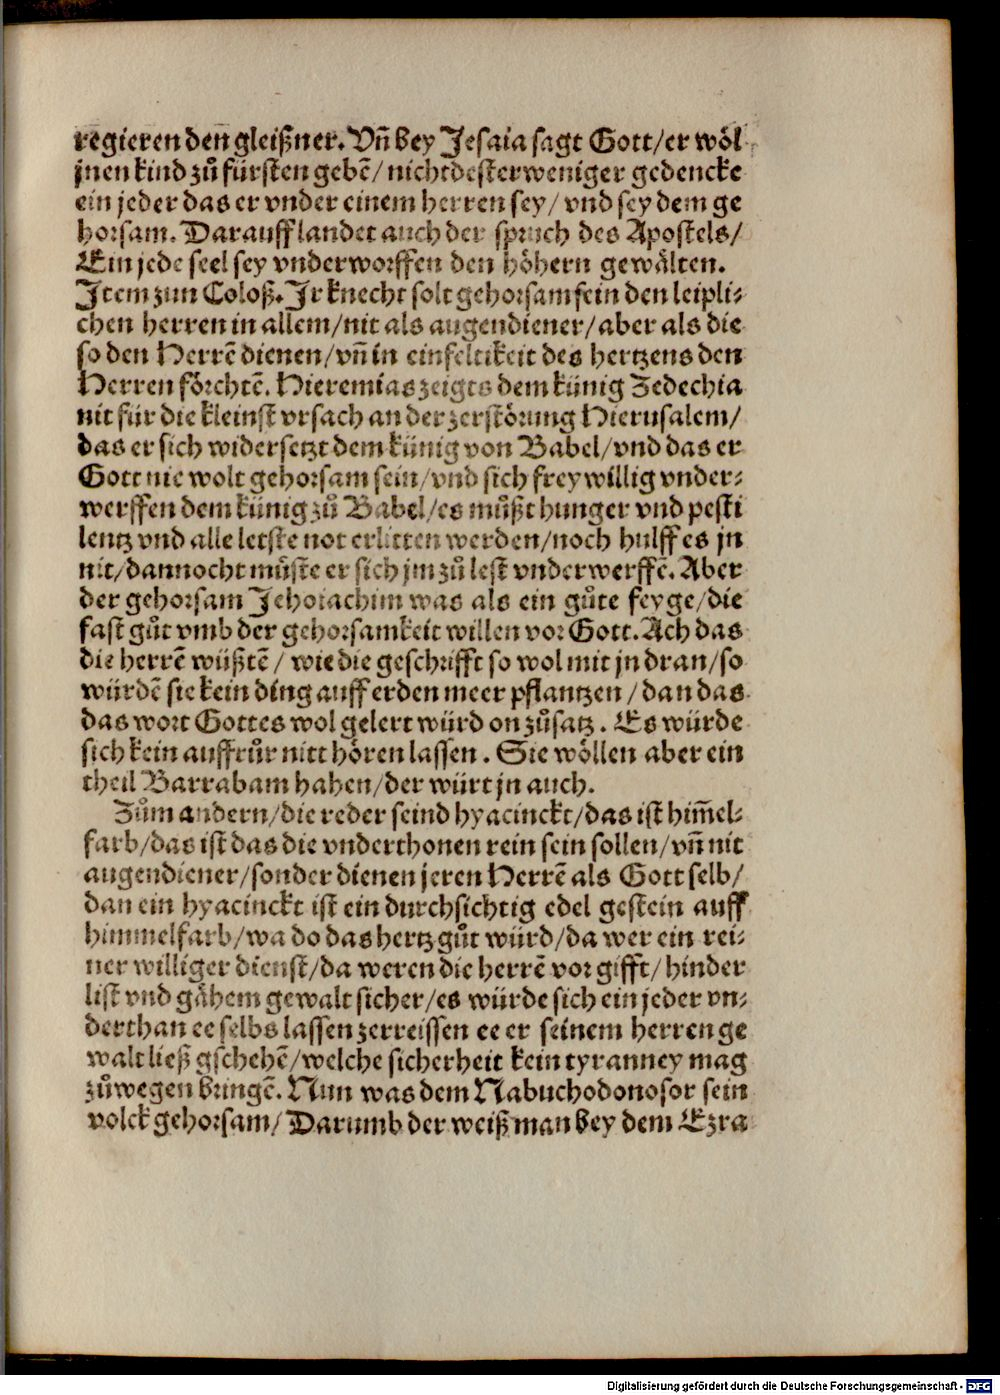 regieren den gleißner. Vnd̄ bey Jesaia sagt Gott/er wöl
jnen kind zů fürsten gebē/ nichtdesterweniger gedencke
ein jeder das er vnder einem herren sey/ vnd sey dem ge
horsam. Darauff landet auch der spruch des Apostels/
Ein jede seel sey vnderworffen den höhern gewälten.
Item zun Coloß. Ir knecht solt gehorsam sein den leipli⸗
chen herren in allem/nit als augendiener/aber als die
so den Herrē dienen/vn̄ in einfeltikeit des hertzens den
Herren förchtē. Hieremias zeigts dem künig Zedechia
nit für die kleinst vrsach an der zerstörung Hierusalem/
das er sich widersetzt dem künig von Babel/vnd das er
Gott nie wolt gehorsam sein/vnd sich frey willig vnder⸗
werffen dem künig zů Babel/es můßt hunger vnd pesti
lentz vnd alle letste not erlitten werden/noch hulff es jn
nit/dannocht můste er sich jm zů lest vnderwerffē. Aber
der gehorsam Jehoiachim was als ein gůte feyge/die
fast gůt vmb der gehorsamkeit willen vor Gott. Ach das
die herrē wüßtē/ wie die geschrifft so wol mit jn dran/so
würdē sie kein ding auff erden meer pflantzen/dan das
das wort Gottes wol gelert würd on zůsatz. Es würde
sich kein auffrůr nitt hören lassen. Sie wöllen aber ein
theil Barrabam hahen/der würt jn auch.
Zům andern/die reder seind hyacinckt/das ist him̄el⸗
farb/das ist das die vnderthonen rein sein sollen/vn̄ nit
augendiener/sonder dienen jeren Herrē als Gott selb/
dan ein hyacinckt ist ein durchsichtig edel gestein auff
himmelfarb/wa do das hertz gůt würd/da wer ein rei⸗
ner williger dienst/da weren die herrē vor gifft/hinder
list vnd gähem gewalt sicher/es würde sich ein jeder vn⸗
derthan ee selbs lassen zerreissen ee er seinem herren ge
walt ließ gschehē/welche sicherheit kein tyranney mag
zůwegen bringē. Nun was dem Nabuchodonosor sein
volck gehorsam/Darumb der weiß man bey dem Ezra
Digitalisierung gefördert durch die Deutsche Forschungsgemeinschaft - DFG